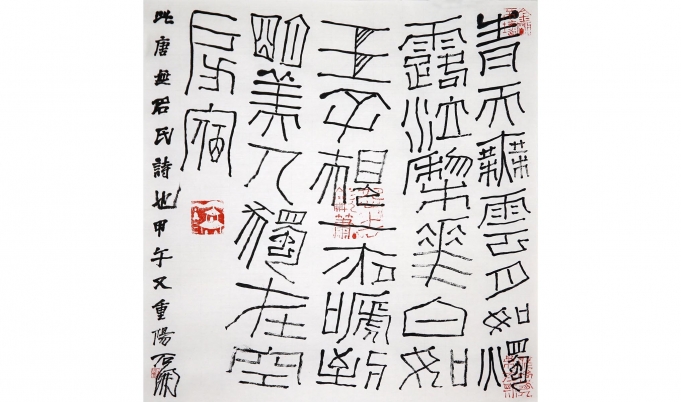 青天無雲月如燭
露泣梨花白如
玉子規一夜啼到
明美人獨在空
房宿
此唐無名氏詩也甲午又重陽